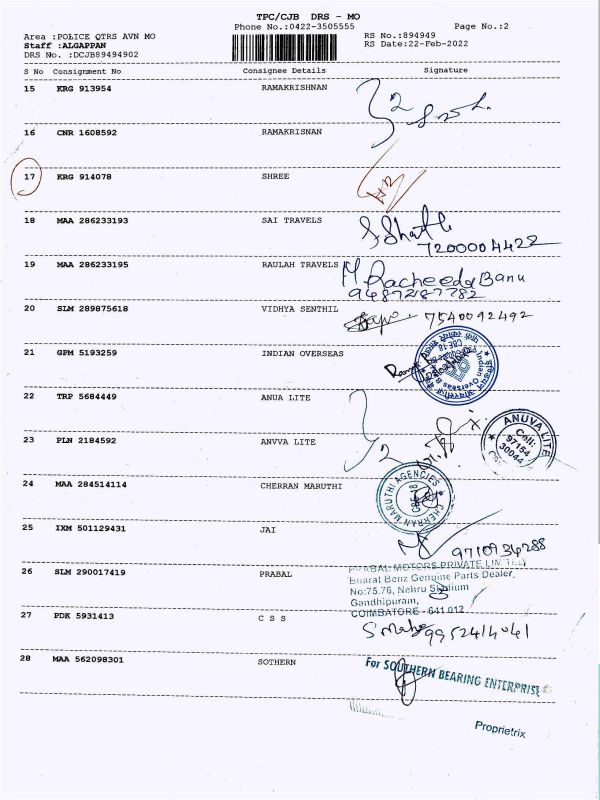 TPC/CJB DRS - MO
Phone No.:0422-3505555 Page No.:2
Area :POLICE QTRS AVN MO RS No.:894949
Staff :ALGAPPAN RS Date:22-Feb-2022
DRS No. :DCJB89494902
S No Consignment No Consignee Details Signature
15 KRG 913954 RAMAKRISHNAN
2
16 CNR 1608592 RAMAKRISNAN
17 KRG 914078 SHREE
18 MAA 286233193 SAI TRAVELS
7200004422
19 MAA 286233195 RAULAH TRAVELS M. Racheeda Banu
9487287782
20 SLM 289875618 VIDHYA SENTHIL 7540092492
21 GPM 5193259 INDIAN OVERSEAS
Indian Overseas
22 TRP 5684449 ANUA LITE
ANUVA LITE
Cell:
97154
30044
23 PLN 2184592 ANVVA LITE
2
24 MAA 284514114 CHERRAN MARUTHI
CHERRAN MARUTHI AGENCIES
CBE-18
25 IXM 501129431 JAI
9710934288
26 SLM 290017419 PRABAL
PRABAL MOTORS PRIVATE LIMITED
Bharat Benz Genuine Parts Dealer,
No:75,76, Nehru Stadium
Gandhipuram,
COIMBATORE - 641 012
27 PDK 5931413 C S S
9952414041
28 MAA 562098301 SOTHERN
For SOUTHERN BEARING ENTERPRISE
Proprietrix